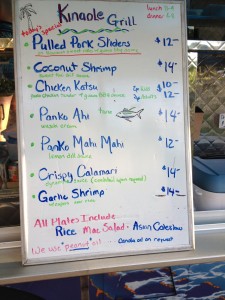 Kinaole Grill
lunch 11-4
today's special
Pulled Pork Sliders $12-
Coconut Shrimp $14-
Chicken Katsu $10-
$12-
Panko Ahi $14-
wasabi cream
Panko Mahi Mahi $12-
lemon dill
Crispy Calamari $14-
Garlic Shrimp $14-
All Plates Include...
Rice Mac Salad - Asian Coleslaw
We use peanut oil... Canola oil on request